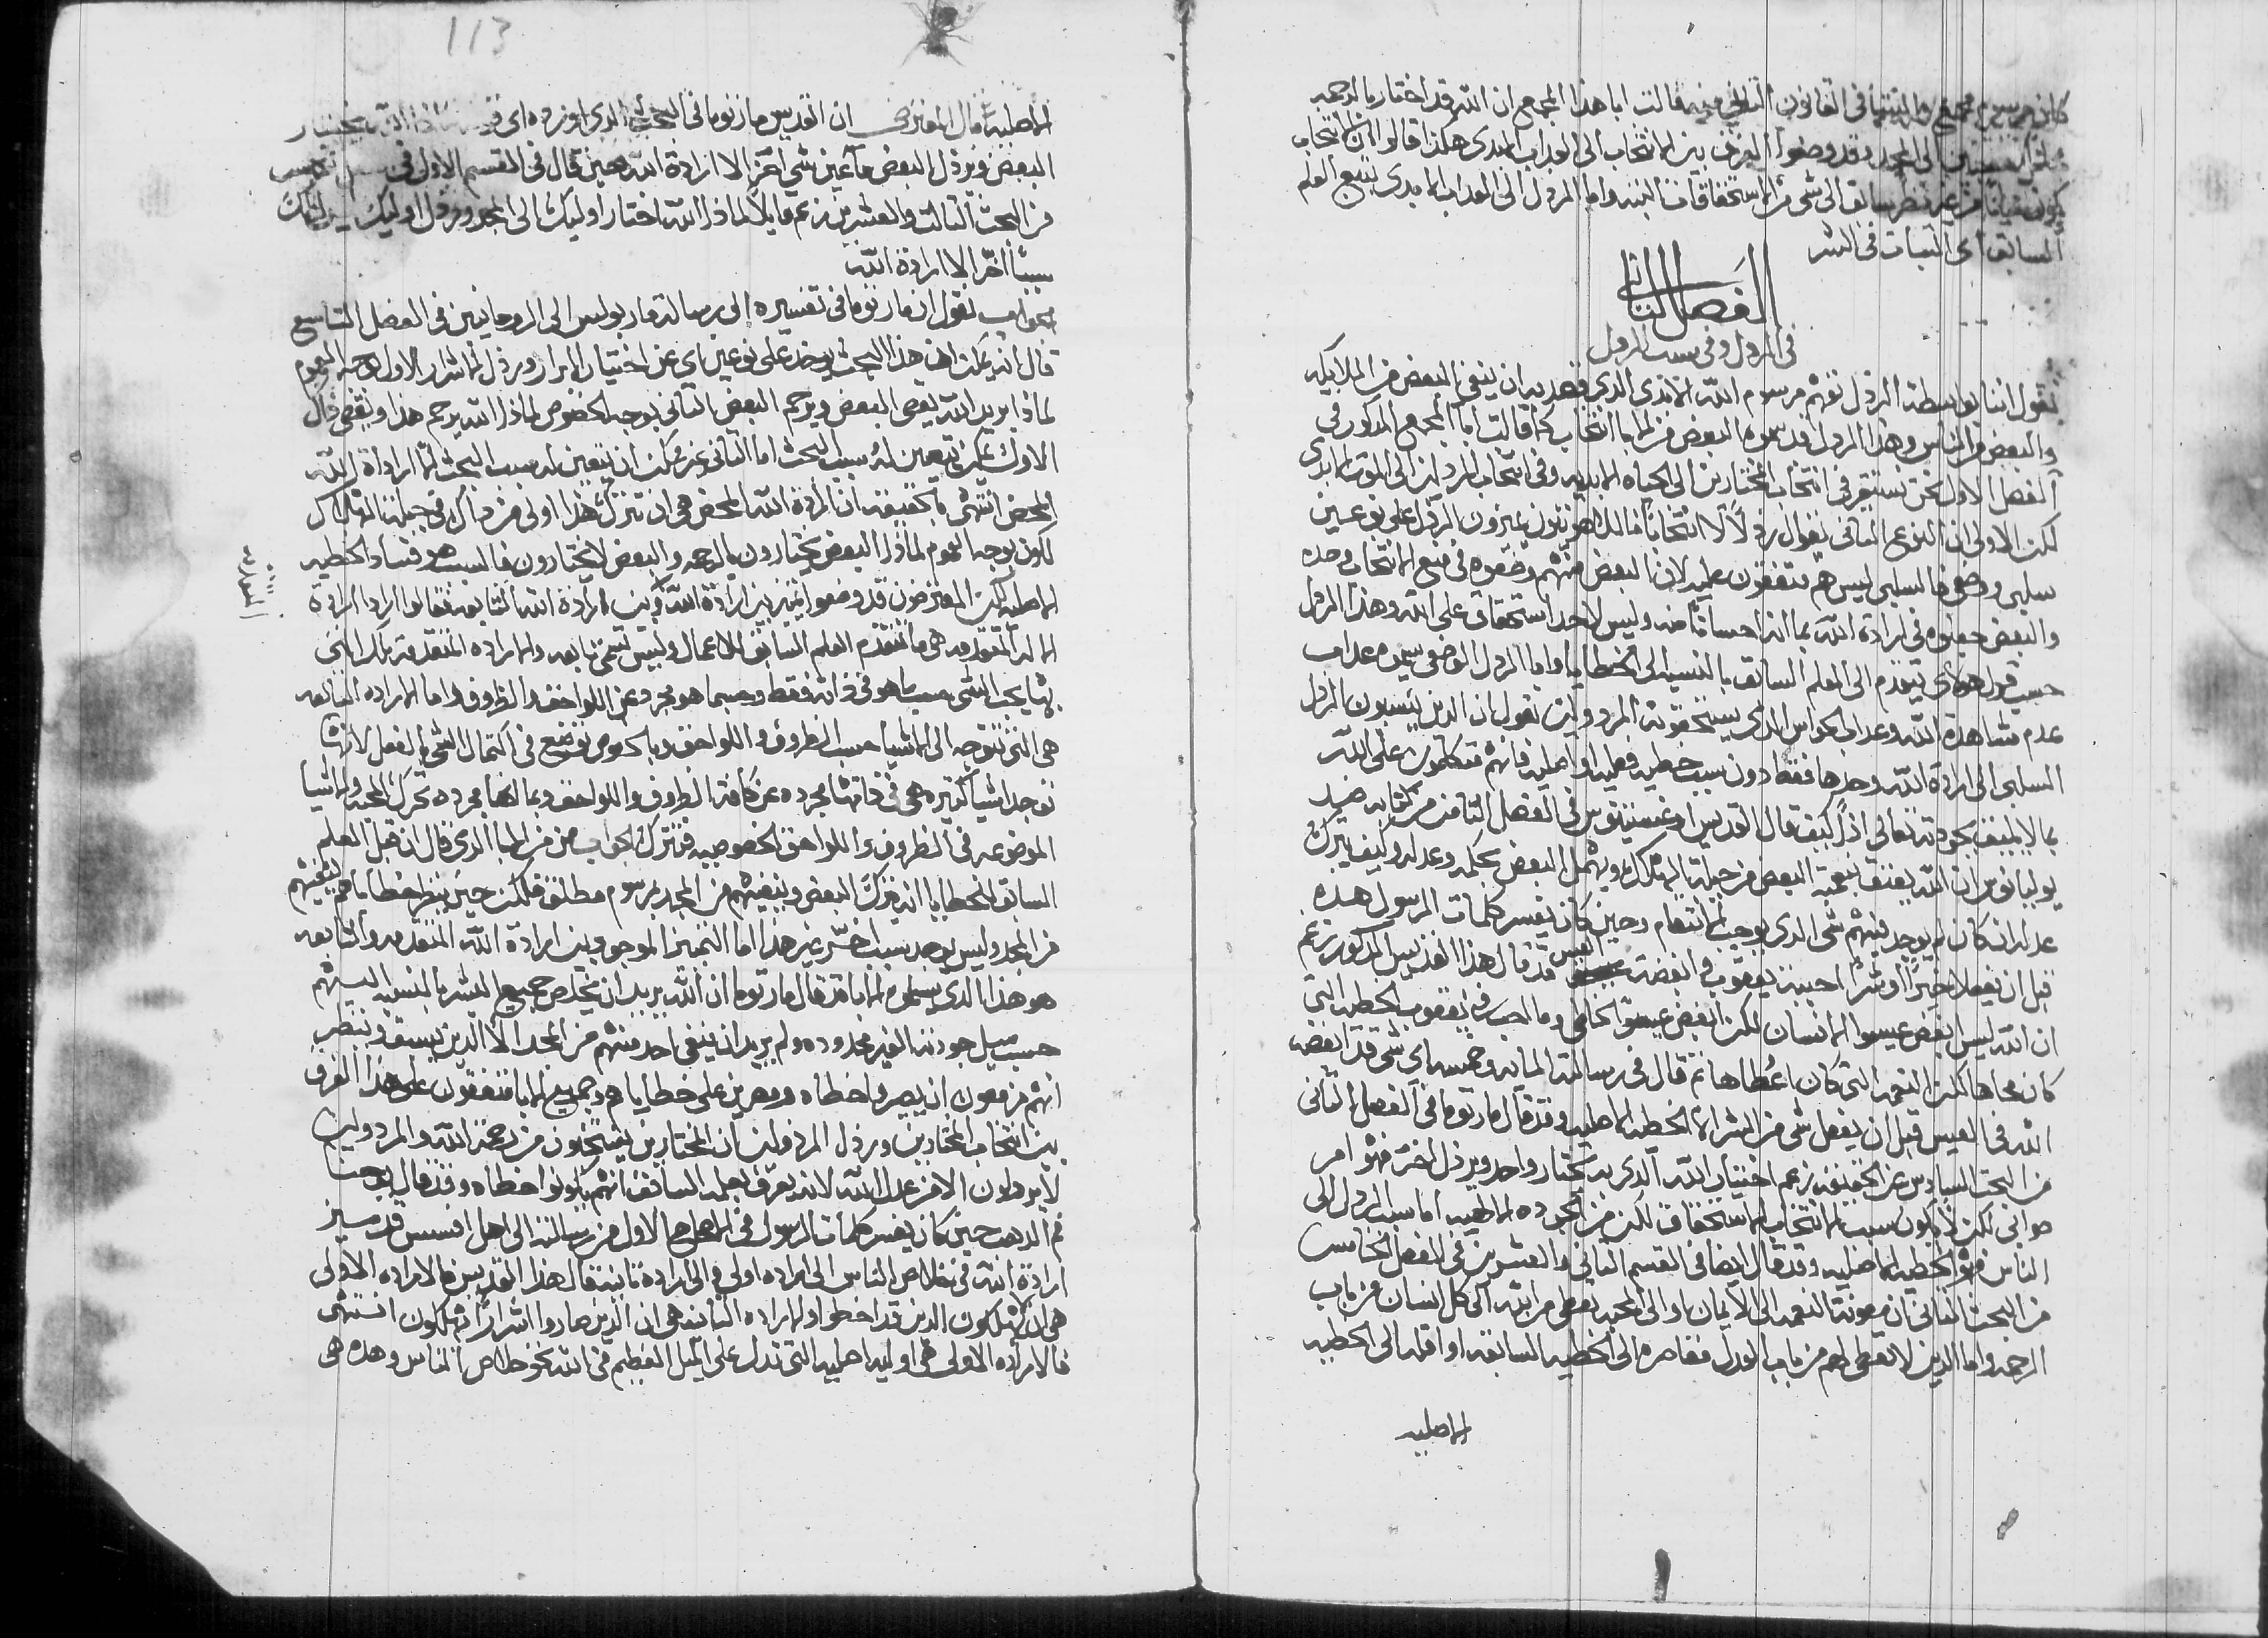 في القانون الثالث منه قالت ابا هذا المجمع ان الله قد اختار بالرحمه
الى المجد وقد وضعوا الفرق بين الانتخاب الى العذاب الابدي هكذا قالوا ان الانتخاب
من غير نظر سابق الى شي من الاستحقاقات البته واما المردول الى العذاب الابدي يتبع العلم
السابق اى الثبات في الشر
الفصل الثاني
في الردل وفي سبب الردل
نقول اننا بواسطة الردل نفهم مرسوم الله الابدي الذي قصد به ان ينفي البعض من الملايكه
والبعض من الناس وهذا الردل قد سموه البعض من الابا انتخاب كما قالت ابا المجمع المذكور في
الفصل الاول نحن نستقر في انتخاب المختارين الى الحياه الابديه وفي انتخاب المردولين الى الموت الابدي
لكن الاولى ان النوع الثاني يقال ردلاً لا انتخاباً فاللاهوتيون يميزون الردل على نوعين
سلبي ووضعي فالسلبي ليس هم متفقون عليه لان البعض منهم وضعوه في منع الانتخاب وحده
والبعض جعلوه في ارادة الله بما انه احساناً منه وليس لاحد استحقاق على الله وهذا الردل
حسب قول هولاى يتقدم الى العلم السابق بالنسبه الى الخطايا واما الردل الوضعي سموه عداب
عدم مشاهدة الله وعداب الحواس الذي يستحقونه المردولين نقول ان الدين ينسبون الردل
السلبي الى ارادة الله وحدها فقط دون سبب خطيه فعليه او اصليه فانهم متكلمون على الله
بما لا يليق بجودته تعالى اذاً كيف قال القديس اوغسطينوس في الفصل الثامن من كتابه ضد
يوليانوس ان الله يعتق بنعمته البعض من جبلة الهلاك ويهمل البعض بحكمه وعدله وكيف يترك
عدله ان كان لم يوجد فيهم شي الدي يوجب الانتقام وحين كان يفسر كلمات الرسول هده
قبل ان يفعلا خيراً او شراً احببت يعقوب وابغضت العيس قد قال هذا القديس المدكور زعم
ان الله ليس ابغض عيسوا الانسان لكن ابغض عيسوا الخاطي وما احب في يعقوب الخطيه التي
كان محاها لكن النعمه التي كان اعطاها ثم قال في رسالته المايه وخمسه اى شي قد ابغضه
الله في العيس قبل ان يفعل شي من الشر الا الخطيه الاصليه وقد قال مار توما في الفصل الثاني
من البحث السادس عن الحقيقه زعم اختيار الله الدي به يختار واحد ويردل اخر فهو امر
صوابي لكن لا يكون سبب الانتخاب الاستحقاق لكن من الجوده الالهيه اما سبب الردل الى
الناس فهو الخطيه الاصليه وقد قال ايضا في القسم الثاني والعشرين في الفصل الخامس
من البحث الثاني ان معونة النعمه الى الايمان او الى المجد يعطي من الله الى كل انسان من باب
الرحمه واما الدين لا تعطى لهم من باب العدل مقاصره الى الخطيه السابقه او اقله الى الخطيه
الاصليه
113
الاصليه قال المعترض ان القديس مار توما في البحث الدي اوردوه
البعض ويردل البعض ما عين شي اخر الا ارادة الله حين قال في القسم الاول في
من البحث الثالث والعشرين زعم قايلاً لماذا الله اختار اوليك الى المجد وردل اوليك
سبباً اخر الا ارادة الله
جواب نقول ان مار توما في تفسيره الى رسالة مار بولس الى الروحانيين في الفصل التاسع
قال انه يمكن ان هذا البحث يوخد على نوعين اى عن اختيار الابرار وردل الاشرار الاول بوجه العموم
لماذا يريد الله يعمي البعض ويرحم البعض الثاني بوجه الخصوص لماذا الله يرحم هذا ويقصي ذاك
الاول يمكن يتعين له سبب البحث اما الثاني غير ممكن ان يتعين له سبب البحث الا ارادة الله
المحض انتهى بالحقيقه ان ارادة الله المحض هي ان تترك هذا اولى من ذاك في جبلة الهلاك
لكون بوجه العموم لماذا البعض يختارون بالرحمه والبعض لا يختارون فالسبب هو فساد الخطيه
الاصليه لكن المعترضون قد وضعوا تميز بين ارادة الله وبين ارادة الله التابعه فقالوا ارادا ارادة
الله المتقدمه هي ما تتقدم العلم السابق للاعمال وليس تسمى تابعه والاراده المتقدمه تلك التي
بها يحب الشي حسب ما هو في ذاته فقط وحسبما هو مجرد عن اللواحق والظروف واما الاراده التابعه
هي التي تتوجه الى الاشيا حسب الظروف واللواحق وبالخصوص توضع في اكتمال الشي بالفعل لاننا
نوجد اشيا كثيره هي في ذاتها مجرده عن كافة الظروف واللواحق وبما انها مجرده تحرك المحبه والاشيا
الموضوعه في الظروف واللواحق الخصوصيه فنترك الجواب من من الابا الدي قال ان قبل العلم
السابق للخطايا ان يترك البعض وينفيهم من المجد بمرسوم مطلق لكن حين ينظر خطاياهم ينفيهم
من المجد وليس يوجد سبب اخر غير هذا اما التميز الموجود بين ارادة الله المتقدمه والتابعه
هو هذا الدي يسلموه الابا قد قال مار توما ان الله يريد ان يخلص جميع البشر بالنسبه اليهم
حسب ميل جودته الغير محدوده ولم يريد ان ينفي احد منهم من المجد الا الدين يسبق وينظر
انهم مزمعون ان يصيروا خطاه ومصرين على خطاياهم وجميع الابا متفقون على هذا الفرق
بين انتخاب المختارين وردل المردولين ان المختارين ينتخبون من رحمة الله والمردولين
لا يردلون الا من عدل الله لانه يعرف بعلمه السابق انهم يكونوا خطاه وقد قال يوحنا
فم الدهب حين كان يفسر كلمات الرسول في الاصحاح الاول من رسالته الى اهل افسس قد ميز
ارادة الله في خلاص الناس الى اراده اولى والى ارادة ثانيه قال هذا القديس فالاراده الاولى
هي ان لا يهلكون الدين قد اخطوا والاراده الثانيه هي ان الدين صاروا اشراراً يهلكون انتهى
فالاراده الاولى هي اوليه اصليه التي تدل على الميل العظيم في الله نحو خلاص الناس وهده هي